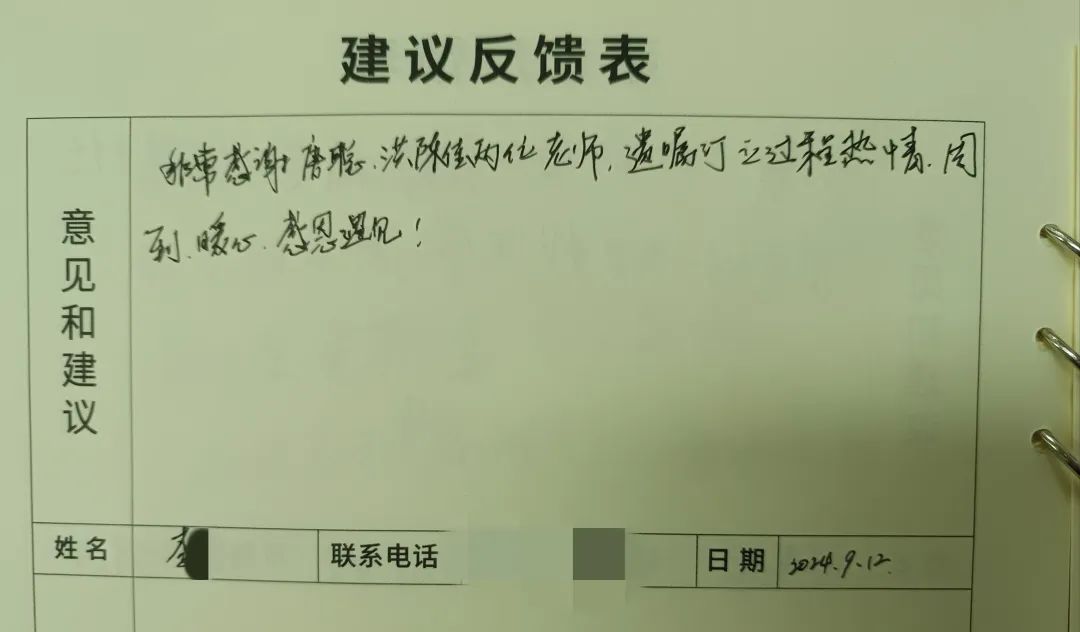 建议反馈表
意见和建议
非常感谢唐聪、洪陈佳两位老师,遗嘱订立过程热情、周
到、暖心、感恩遇见!
姓名 李 联系电话 日期 2024.9.12.